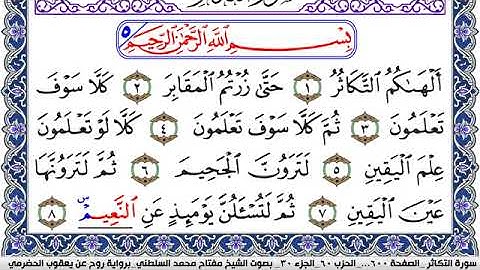 بِسْمِ اللَّهِ الرَّحْمَٰنِ الرَّحِيمِ ٥
أَلْهَىٰكُمُ التَّكَاثُرُ ١ حَتَّىٰ زُرْتُمُ الْمَقَابِرَ ٢ كَلَّا سَوْفَ
تَعْلَمُونَ ٣ ثُمَّ كَلَّا سَوْفَ تَعْلَمُونَ ٤ كَلَّا لَوْ تَعْلَمُونَ
عِلْمَ الْيَقِينِ ٥ لَتَرَوُنَّ الْجَحِيمَ ٦ ثُمَّ لَتَرَوُنَّهَا
عَيْنَ الْيَقِينِ ٧ ثُمَّ لَتُسْـَٔلُنَّ يَوْمَئِذٍ عَنِ النَّعِيمِ ٨
سورة التكاثر_ الصفحة ٦٠٠... الحزب ٦٠_الجزء ٣٠_ بصوت الشيخ مفتاح محمد السلطني_برواية روح عن يعقوب الحضرمي